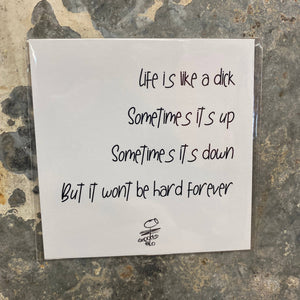 Life is like a dick
Sometimes it's up
Sometimes it's down
But it wont be hard forever